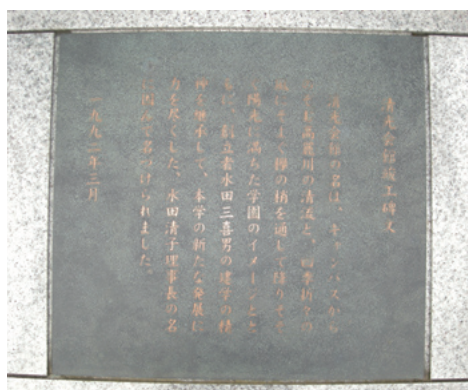 清光会館竣工碑文
清光会館の名は、キャンパスから
のぞむ高麗川の清流と、四季折々の
風にそよぐ欅の梢を通して降りそそ
ぐ陽光に満ちた学園のイメージとと
もに、創立者水田三喜男の建学の精
神を継承して、本学の新たな発展に
力を尽くした、水田清子理事長の名
に因んで名づけられました。
一九九二年三月